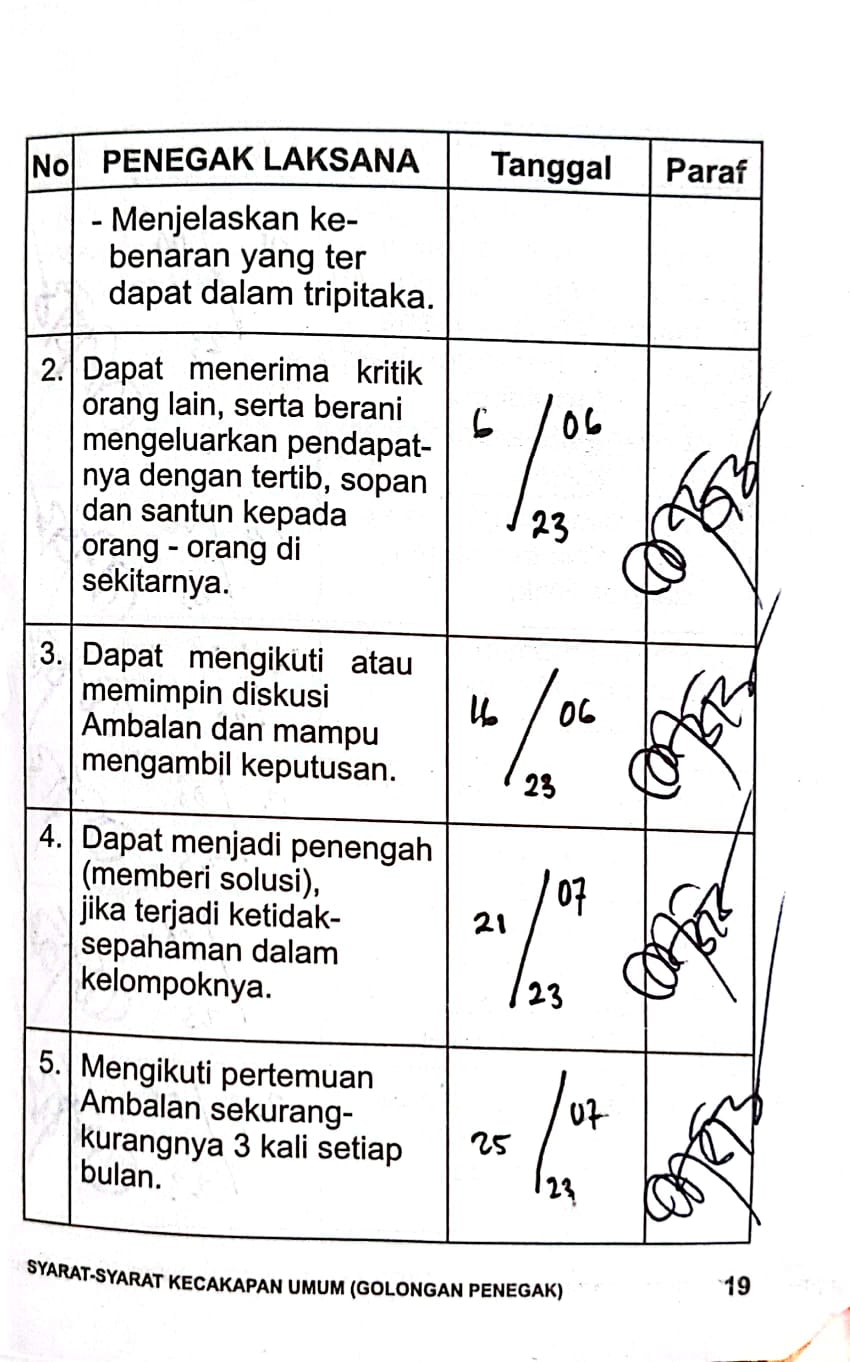 No PENEGAK LAKSANA Tanggal Paraf
- Menjelaskan ke-
benaran yang ter
dapat dalam tripitaka.
2. Dapat menerima kritik
orang lain, serta berani
mengeluarkan pendapat-
nya dengan tertib, sopan
dan santun kepada
orang - orang di
sekitarnya.
6 / 06
23
3. Dapat mengikuti atau
memimpin diskusi
Ambalan dan mampu
mengambil keputusan.
/ 06
23
4. Dapat menjadi penengah
(memberi solusi),
jika terjadi ketidak-
sepahaman dalam
kelompoknya.
21 / 07
23
5. Mengikuti pertemuan
Ambalan sekurang-
kurangnya 3 kali setiap
bulan.
25 / 07
23
SYARAT-SYARAT KECAKAPAN UMUM (GOLONGAN PENEGAK) 19